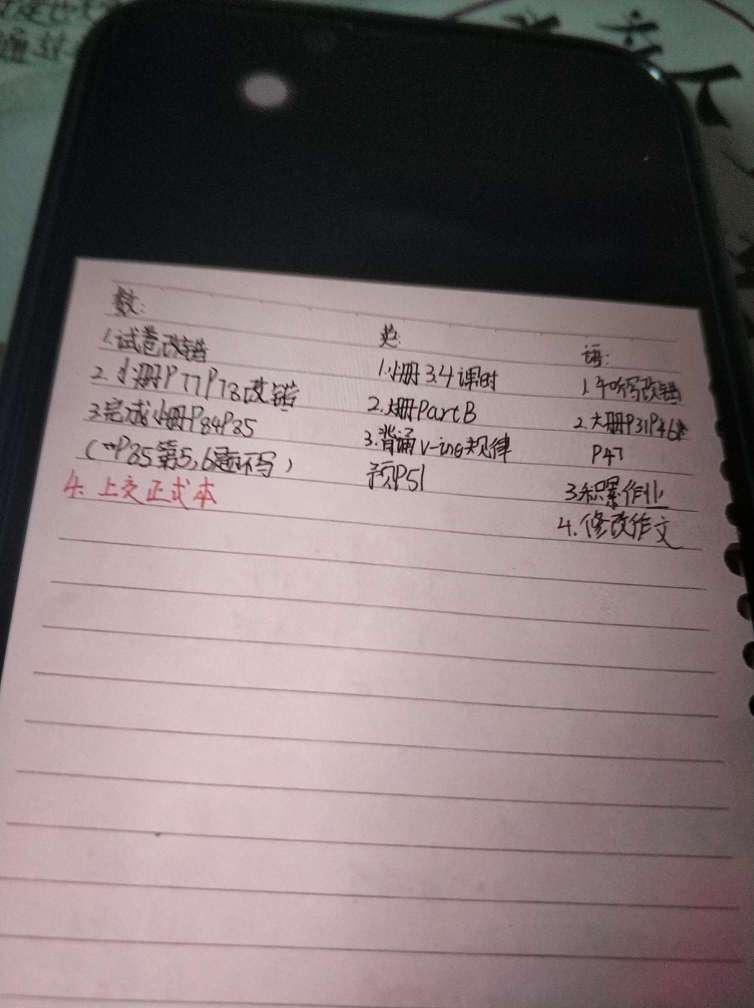 数:
1.试卷改错
2.小册P77P78改错
3.完成小册P84P85
(P85第5,6题不写)
4.上交正式本
英:
1.小册3.4课时
2.大册PartB
3.背诵v-ing规律
预P51
语:
1.听写改错
2.大册P31P46
P47
3.积累作业
4.修改作文